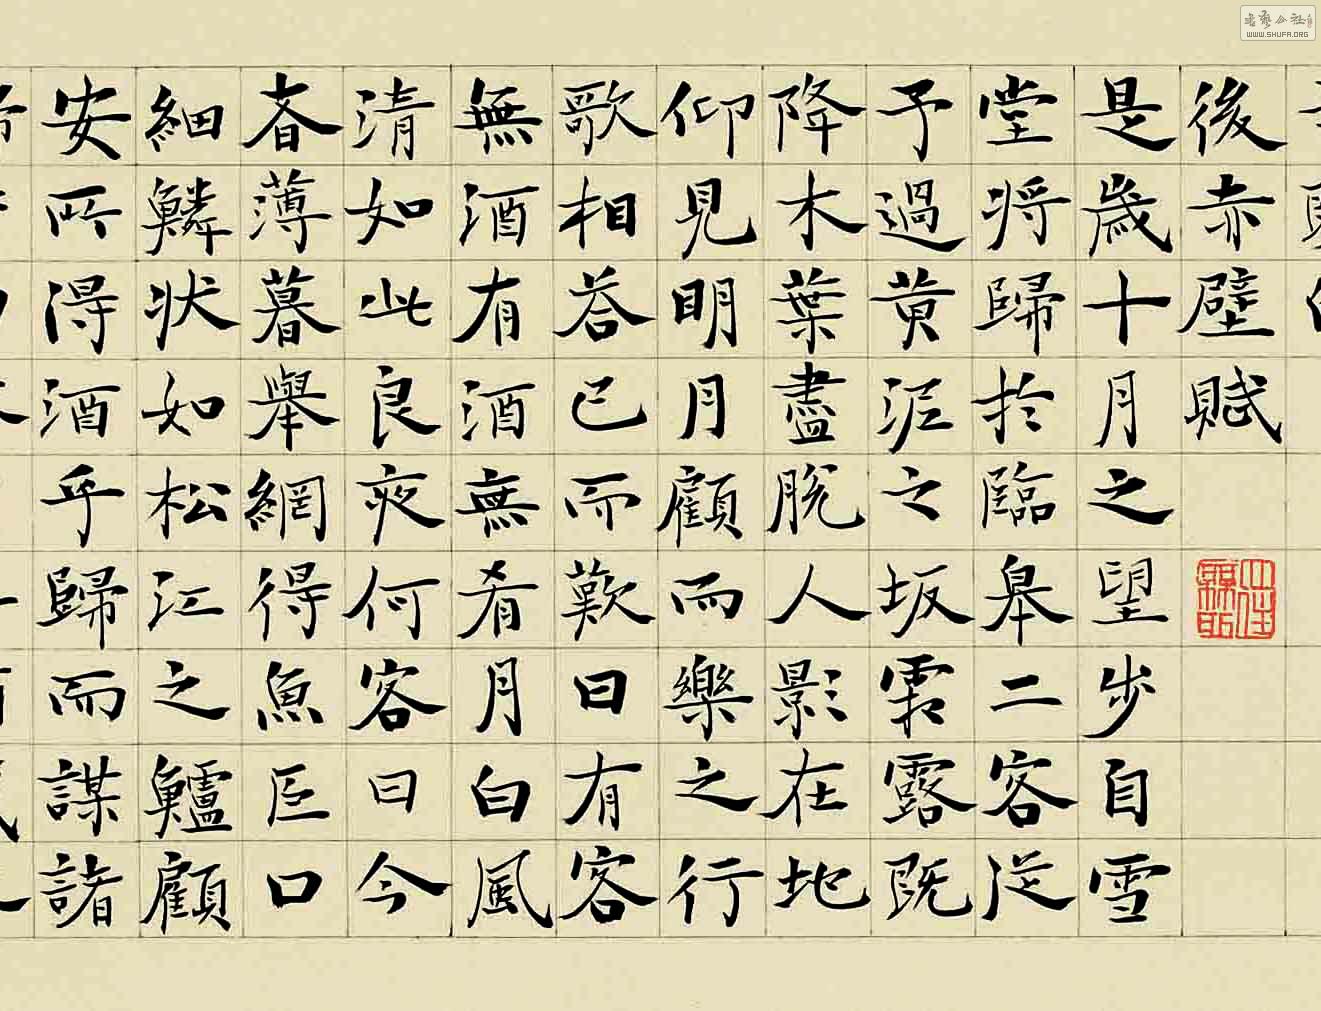 後赤壁賦
是歲十月之望步自雪
堂将歸於臨皋二客從
予過黄泥之坂霜露既
降木葉盡脫人影在地
仰見明月顧而樂之行
歌相荅已而歎曰有客
無酒有酒無肴月白風
清如此良夜何客曰今
者薄暮舉網得魚巨口
細鱗狀如松江之鱸顧
安所得酒乎歸而謀諸
書藝公社
WWW.SHUFA.ORG